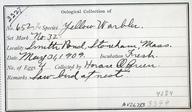 Oological Collection of
No. 652 76 Species Yellow Warbler.
Set Mark No. 32
Smith's Pond, Stoneham, Mass.
Date May 30, 1909. Incubation Fresh
No. of Eggs Collected by Horace O. Green.
Remarks Saw bird at nest.